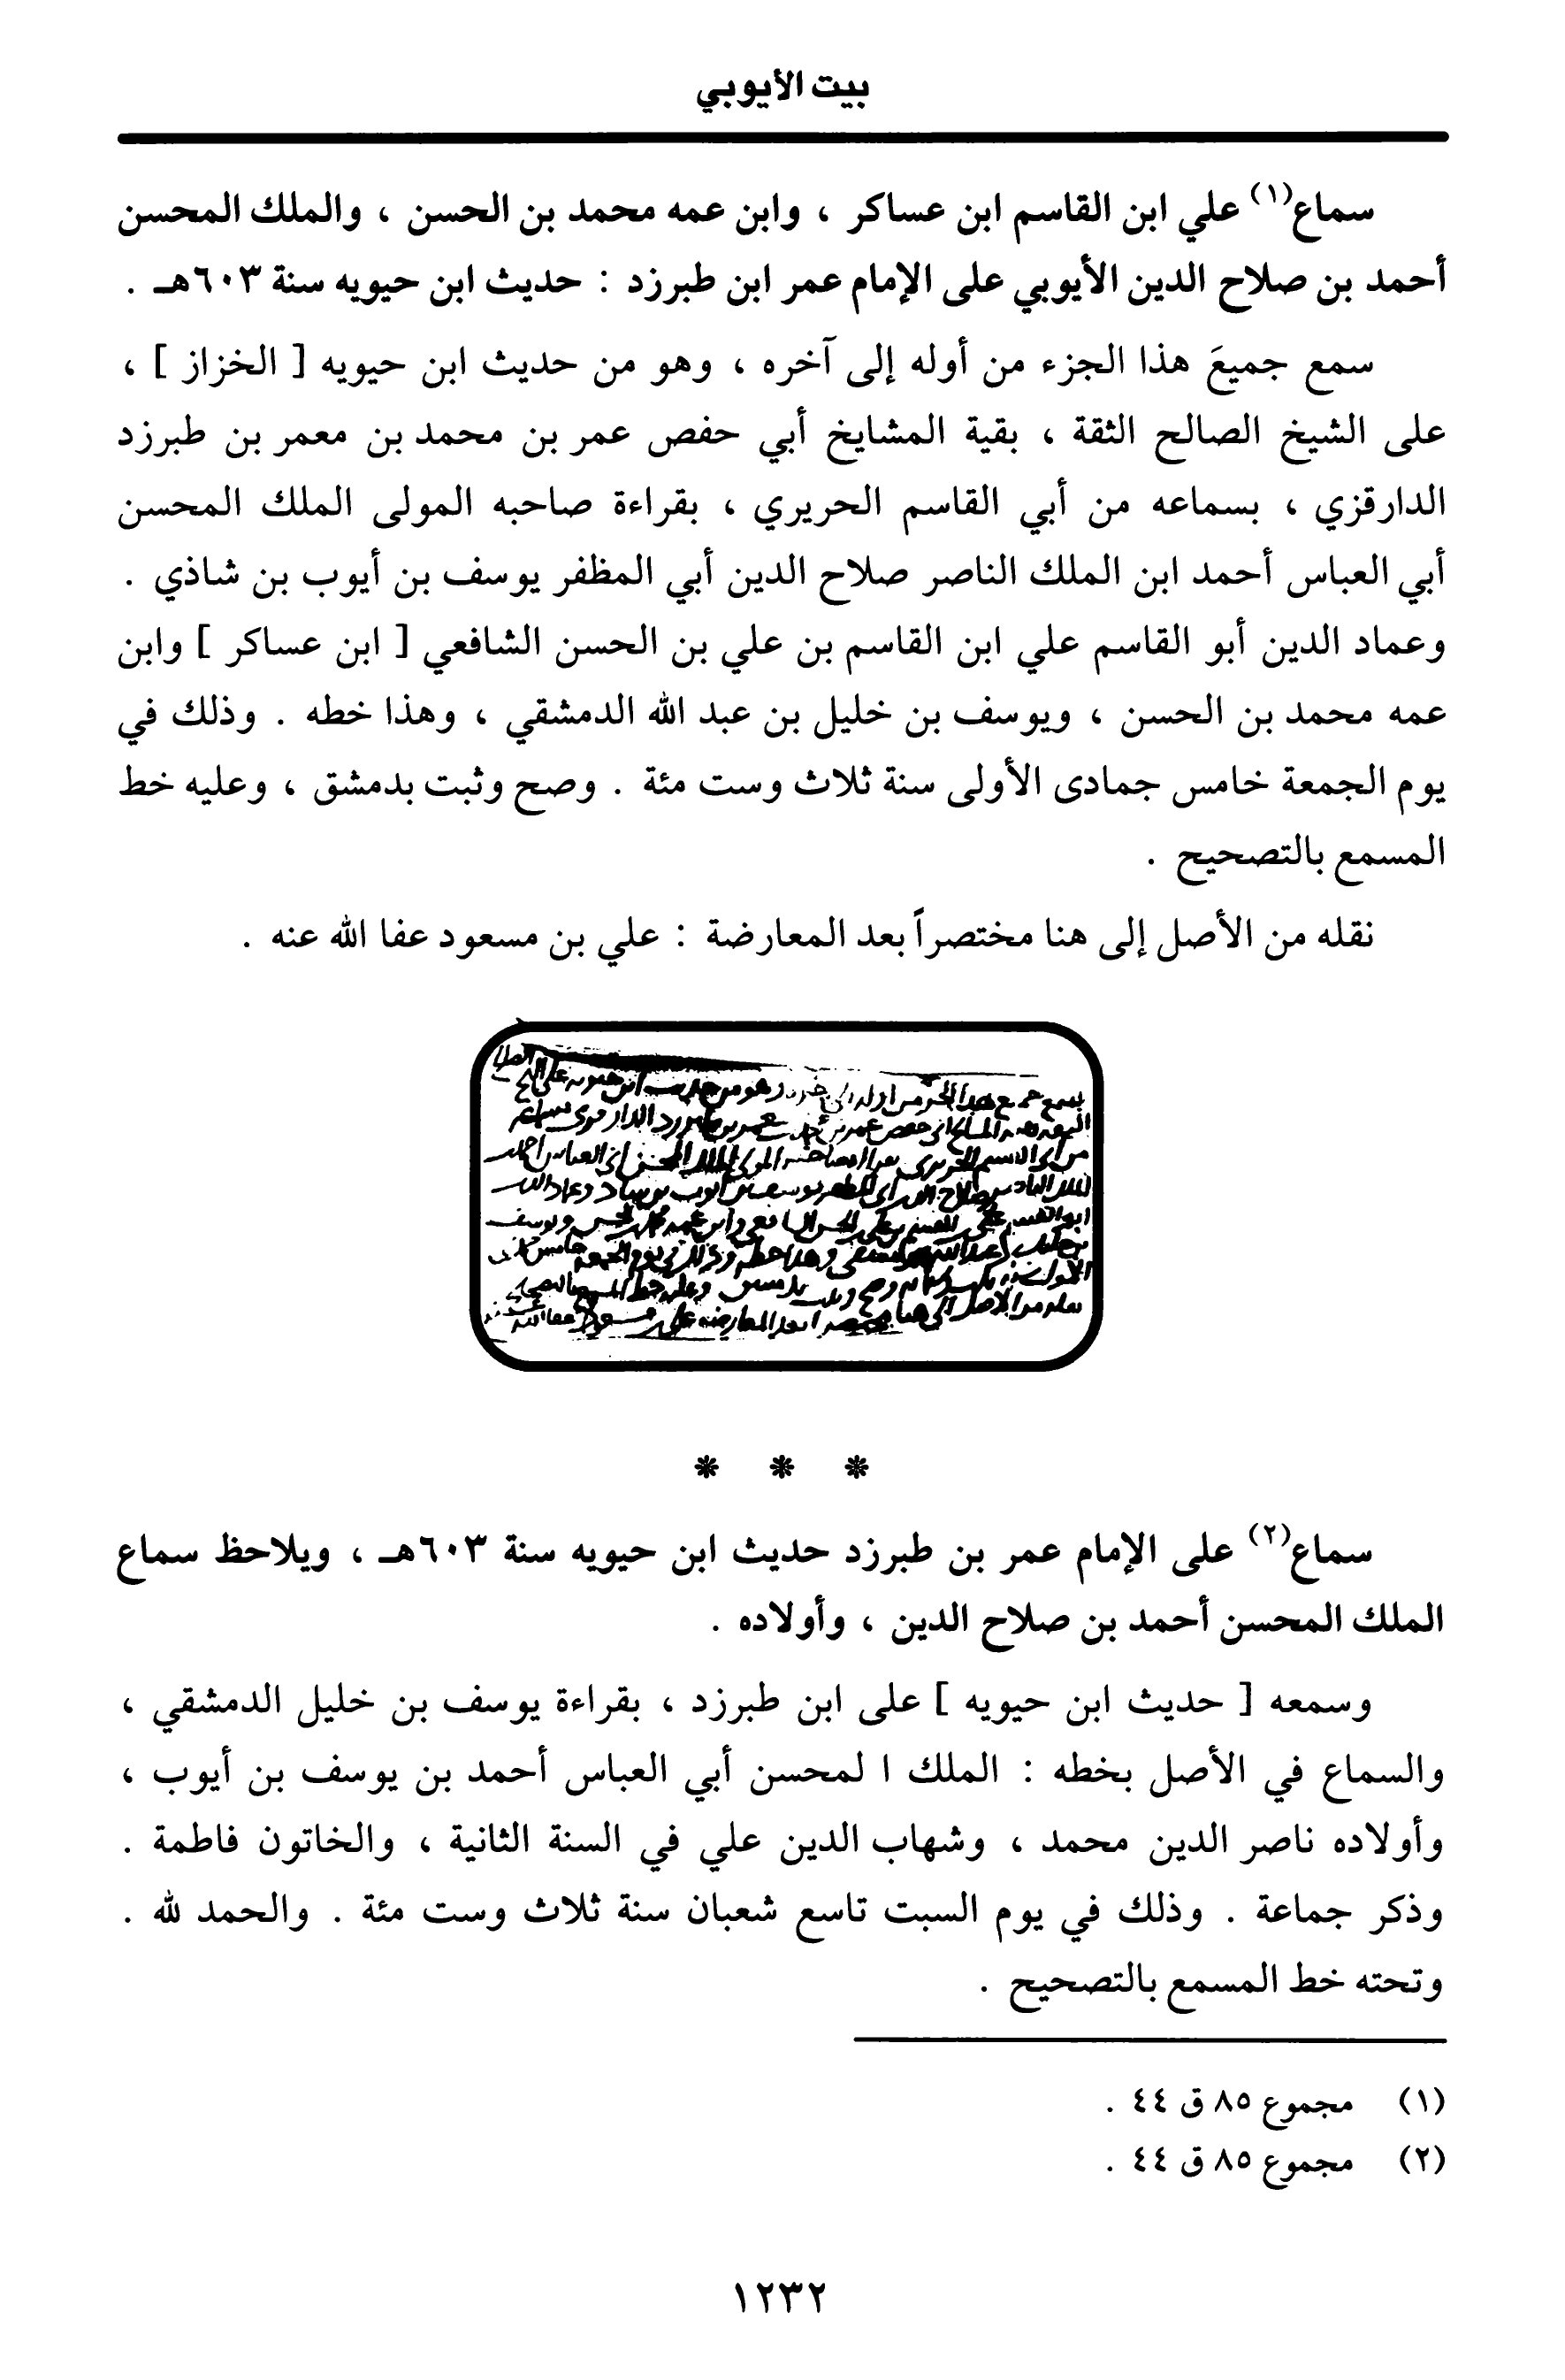 بيت الأيوبي
سماع(١) علي ابن القاسم ابن عساكر ، وابن عمه محمد بن الحسن ، والملك المحسن
أحمد بن صلاح الدين الأيوبي على الإمام عمر ابن طبرزد : حديث ابن حيويه سنة ٦٠٣هـ .
سمع جميعَ هذا الجزء من أوله إلى آخره ، وهو من حديث ابن حيويه [ الخزاز ] ،
على الشيخ الصالح الثقة ، بقية المشايخ أبي حفص عمر بن محمد بن معمر بن طبرزد
الدارقزي ، بسماعه من أبي القاسم الحريري ، بقراءة صاحبه المولى الملك المحسن
أبي العباس أحمد ابن الملك الناصر صلاح الدين أبي المظفر يوسف بن أيوب بن شاذي .
وعماد الدين أبو القاسم علي ابن القاسم بن علي بن الحسن الشافعي [ ابن عساكر ] وابن
عمه محمد بن الحسن ، ويوسف بن خليل بن عبد الله الدمشقي ، وهذا خطه . وذلك في
يوم الجمعة خامس جمادى الأولى سنة ثلاث وست مئة . وصح وثبت بدمشق ، وعليه خط
المسمع بالتصحيح .
نقله من الأصل إلى هنا مختصراً بعد المعارضة : علي بن مسعود عفا الله عنه .
* * *
سماع(٢) على الإمام عمر بن طبرزد حديث ابن حيويه سنة ٦٠٣هـ ، ويلاحظ سماع
الملك المحسن أحمد بن صلاح الدين ، وأولاده .
وسمعه [ حديث ابن حيويه ] على ابن طبرزد ، بقراءة يوسف بن خليل الدمشقي ،
والسماع في الأصل بخطه : الملك ا لمحسن أبي العباس أحمد بن يوسف بن أيوب ،
وأولاده ناصر الدين محمد ، وشهاب الدين علي في السنة الثانية ، والخاتون فاطمة .
وذكر جماعة . وذلك في يوم السبت تاسع شعبان سنة ثلاث وست مئة . والحمد لله .
وتحته خط المسمع بالتصحيح .
(١) مجموع ٨٥ ق ٤٤ .
(٢) مجموع ٨٥ ق ٤٤ .
١٢٣٢